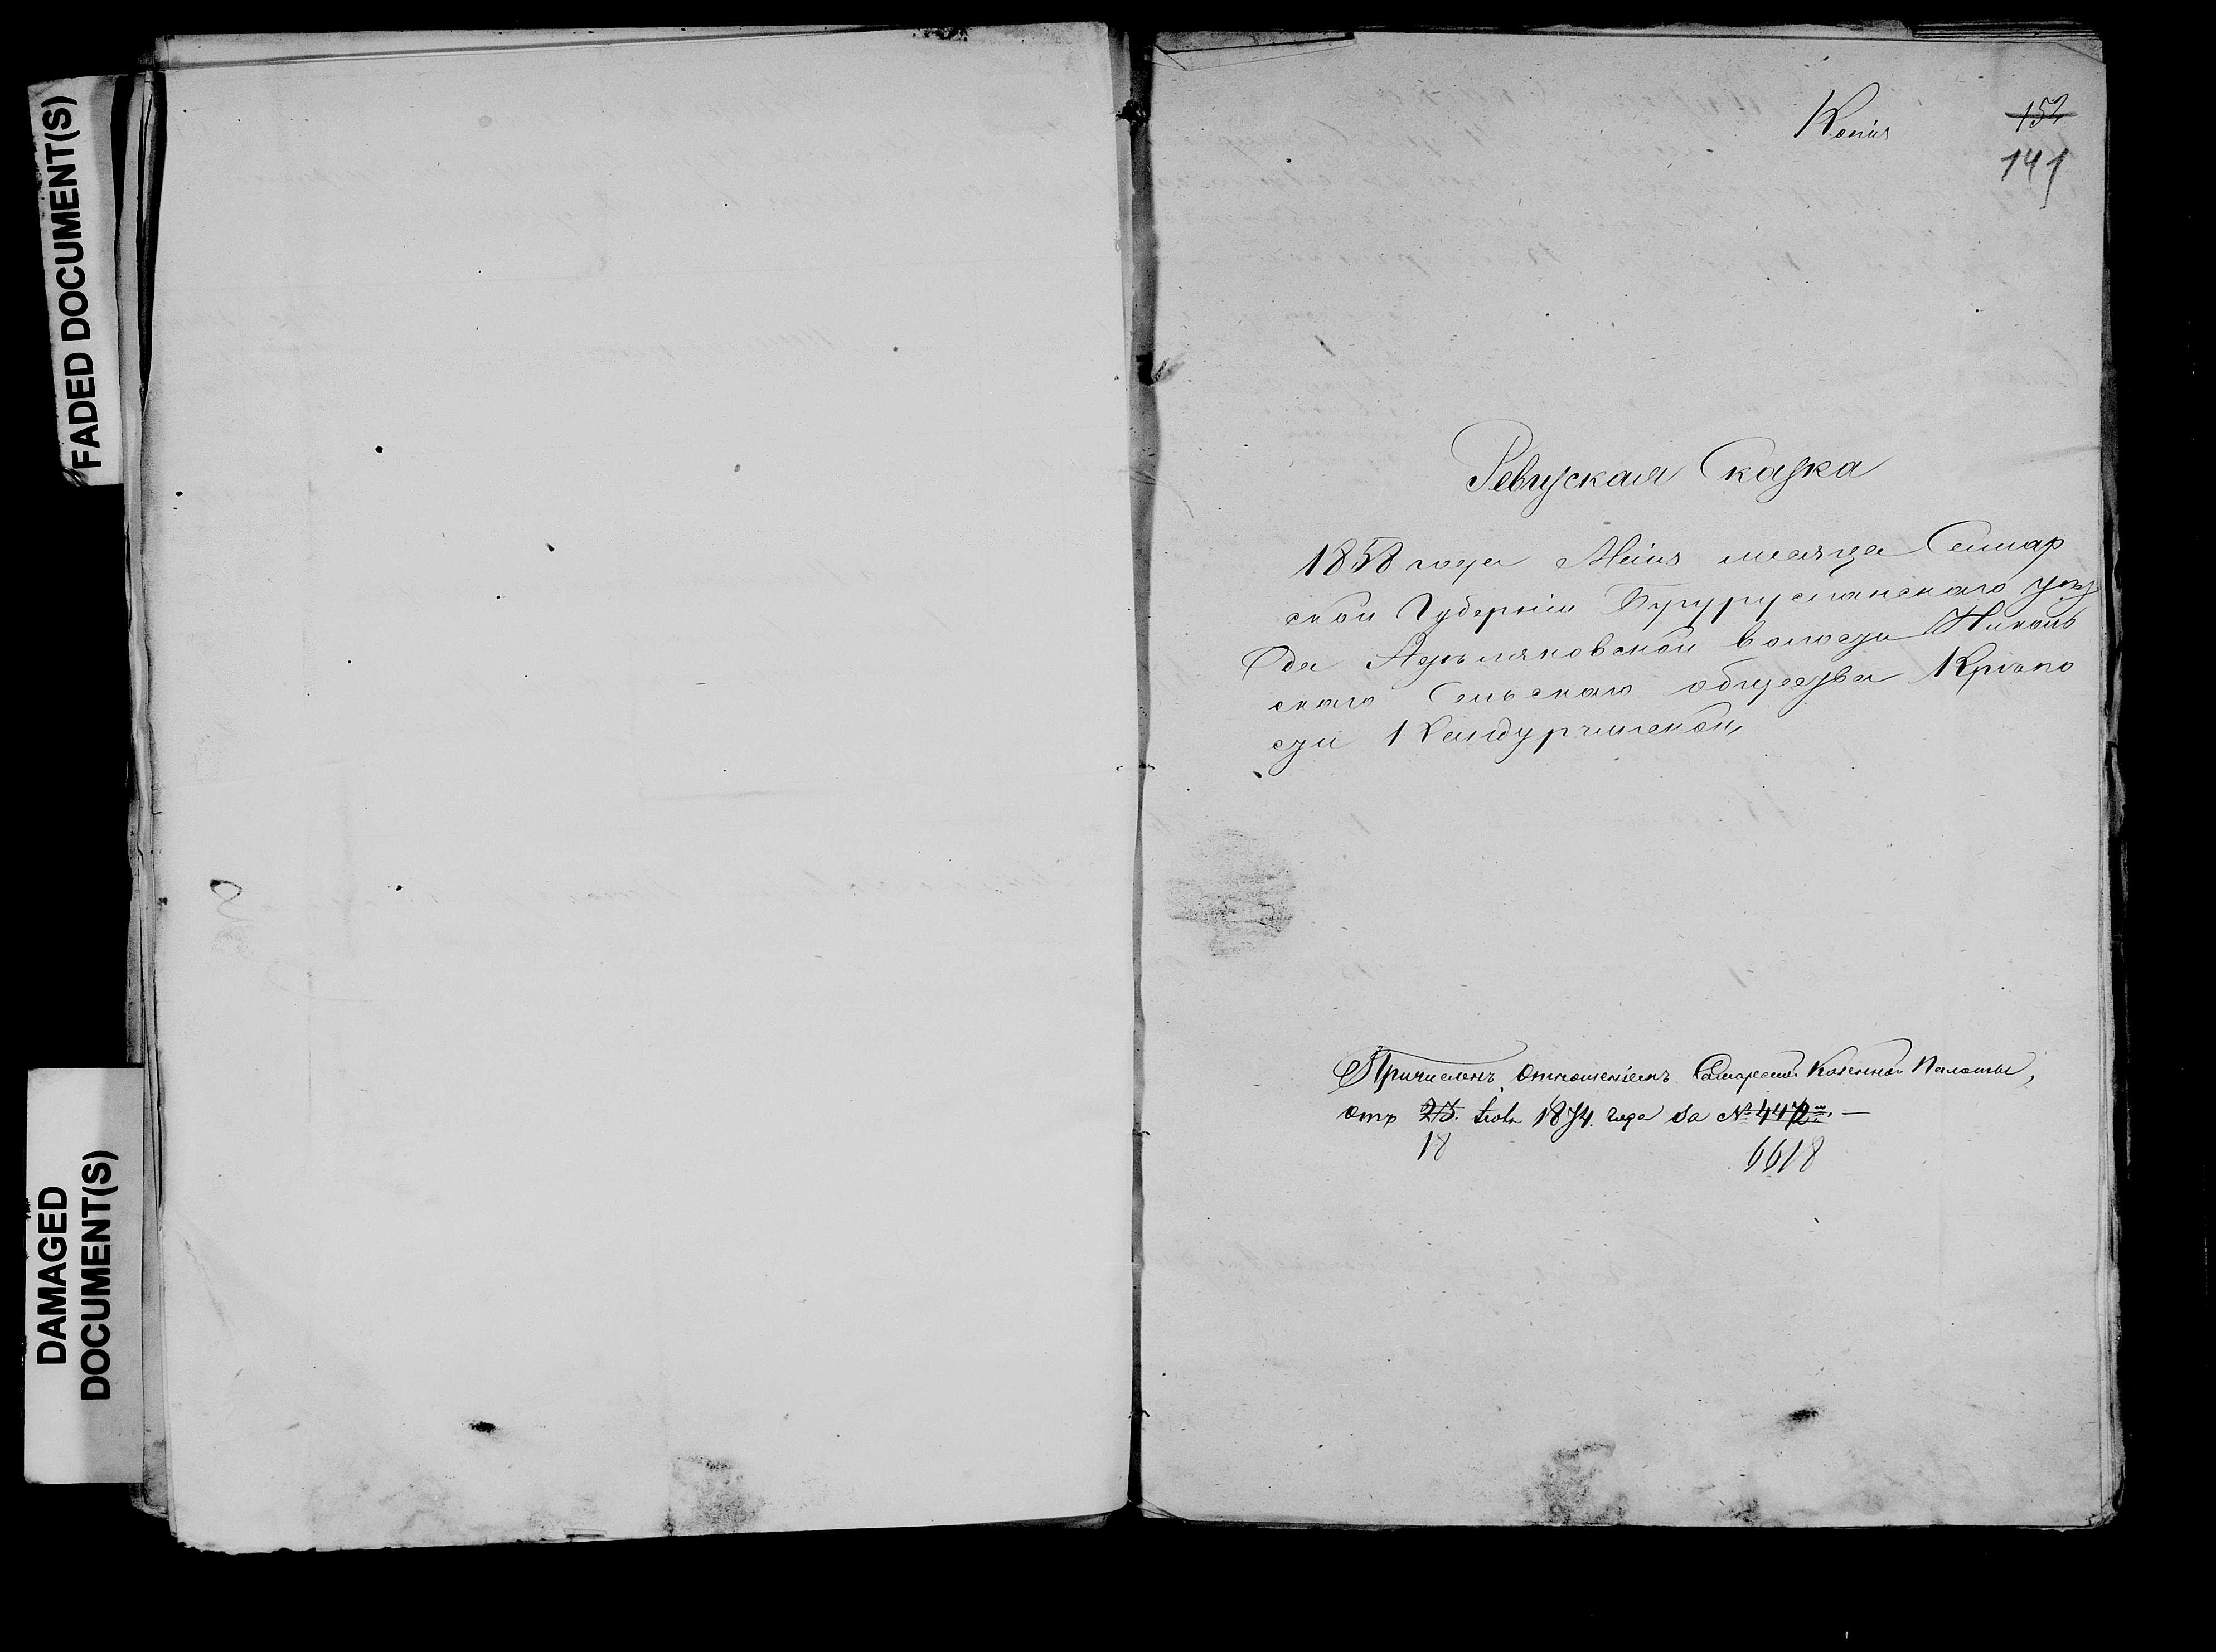 FADED DOCUMENT(S)
DAMAGED
DOCUMENT(S)
Копія
152
141
Ревизская Сказка
1858 года Маія месяца Самар
ской Губерніи Бугурусланскаго уез
да Аделяковской волости Николь
скаго Сельскаго общества Крѣпо
сти Кандурчинской,
Причисленъ Отношеніемъ Самарской Казенной Палаты,
отъ 25. 1874. года за № 4472
18
6618